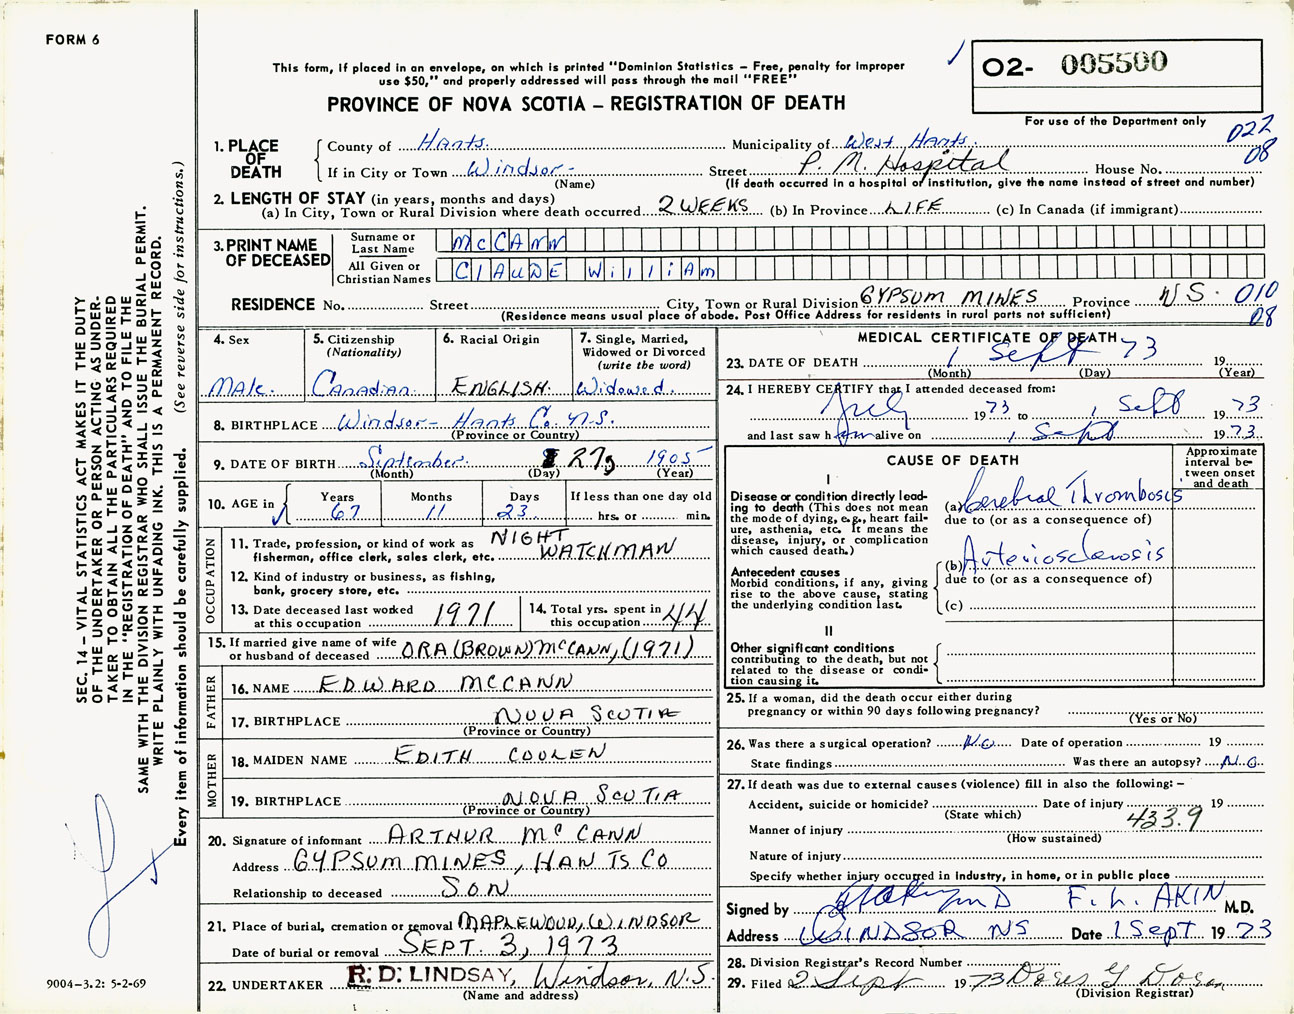 FORM 6
This form, if placed in an envelope, on which is printed "Dominion Statistics – Free, penalty for improper
use $50," and properly addressed will pass through the mail "FREE"
PROVINCE OF NOVA SCOTIA – REGISTRATION OF DEATH
02- 005500
For use of the Department only
022
08
1. PLACE OF DEATH
County of Hants. Municipality of West Hants.
If in City or Town Windsor- (Name) Street P. M. Hospital House No.
(If death occurred in a hospital or institution, give the name instead of street and number)
2. LENGTH OF STAY (in years, months and days)
(a) In City, Town or Rural Division where death occurred 2 WEEKS (b) In Province LIFE (c) In Canada (if immigrant)
3. PRINT NAME OF DECEASED
Surname or Last Name McCANN
All Given or Christian Names ClAUDE William
RESIDENCE No. Street City, Town or Rural Division GYPSUM MINES Province N S. 010
(Residence means usual place of abode. Post Office Address for residents in rural parts not sufficient) 08
4. Sex Male.
5. Citizenship (Nationality) Canadian.
6. Racial Origin ENGLISH.
7. Single, Married, Widowed or Divorced (write the word) Widowed.
8. BIRTHPLACE Windsor- Hants Co. N.S.
(Province or Country)
9. DATE OF BIRTH September. 27 1905
(Month) (Day) (Year)
10. AGE in Years 67 Months 11 Days 23 If less than one day old hrs. or min.
OCCUPATION
11. Trade, profession, or kind of work as fisherman, office clerk, sales clerk, etc. NIGHT WATCHMAN
12. Kind of industry or business, as fishing, bank, grocery store, etc.
13. Date deceased last worked at this occupation 1971
14. Total yrs. spent in this occupation 44
15. If married give name of wife or husband of deceased ORA (BROWN) McCANN, (1971)
FATHER
16. NAME EDWARD MCCANN
17. BIRTHPLACE NOVA SCOTIA
(Province or Country)
MOTHER
18. MAIDEN NAME EDITH COOLEN
19. BIRTHPLACE NOVA SCOTIA
(Province or Country)
20. Signature of informant ARTHUR McCANN
Address GYPSUM MINES, HANTS CO
Relationship to deceased SON
21. Place of burial, cremation or removal MAPLEWOOD, WINDSOR
Date of burial or removal SEPT. 3, 1973
22. UNDERTAKER R. D. LINDSAY, Windsor, N.S.
(Name and address)
MEDICAL CERTIFICATE OF DEATH
23. DATE OF DEATH 1 Sept 73 19
(Month) (Day) (Year)
24. I HEREBY CERTIFY that I attended deceased from:
July 1973 to 1 Sept 1973
and last saw him alive on 1 Sept 1973
CAUSE OF DEATH
Approximate interval between onset and death
I
Disease or condition directly leading to death (This does not mean the mode of dying, e.g., heart failure, asthenia, etc. It means the disease, injury, or complication which caused death.)
(a) Cerebral Thrombosis
due to (or as a consequence of)
Antecedent causes
Morbid conditions, if any, giving rise to the above cause, stating the underlying condition last.
(b) Arteriosclerosis
due to (or as a consequence of)
(c)
II
Other significant conditions
contributing to the death, but not related to the disease or condition causing it.
25. If a woman, did the death occur either during
pregnancy or within 90 days following pregnancy?
(Yes or No)
26. Was there a surgical operation? No Date of operation 19
State findings Was there an autopsy? No.
27. If death was due to external causes (violence) fill in also the following: –
Accident, suicide or homicide? Date of injury 19
(State which)
Manner of injury 433.9
(How sustained)
Nature of injury
Specify whether injury occurred in industry, in home, or in public place
Signed by F. L. AKIN M.D.
Address WINDSOR NS Date 1 Sept 1973
28. Division Registrar's Record Number
29. Filed 2 Sept 1973
(Division Registrar)
SEC. 14 – VITAL STATISTICS ACT MAKES IT THE DUTY
OF THE UNDERTAKER OR PERSON ACTING AS UNDER-
TAKER TO OBTAIN ALL THE PARTICULARS REQUIRED
IN THE "REGISTRATION OF DEATH" AND TO FILE THE
SAME WITH THE DIVISION REGISTRAR WHO SHALL ISSUE THE BURIAL PERMIT.
WRITE PLAINLY WITH UNFADING INK. THIS IS A PERMANENT RECORD.
Every item of information should be carefully supplied. (See reverse side for instructions.)
9004-3.2: 5-2-69